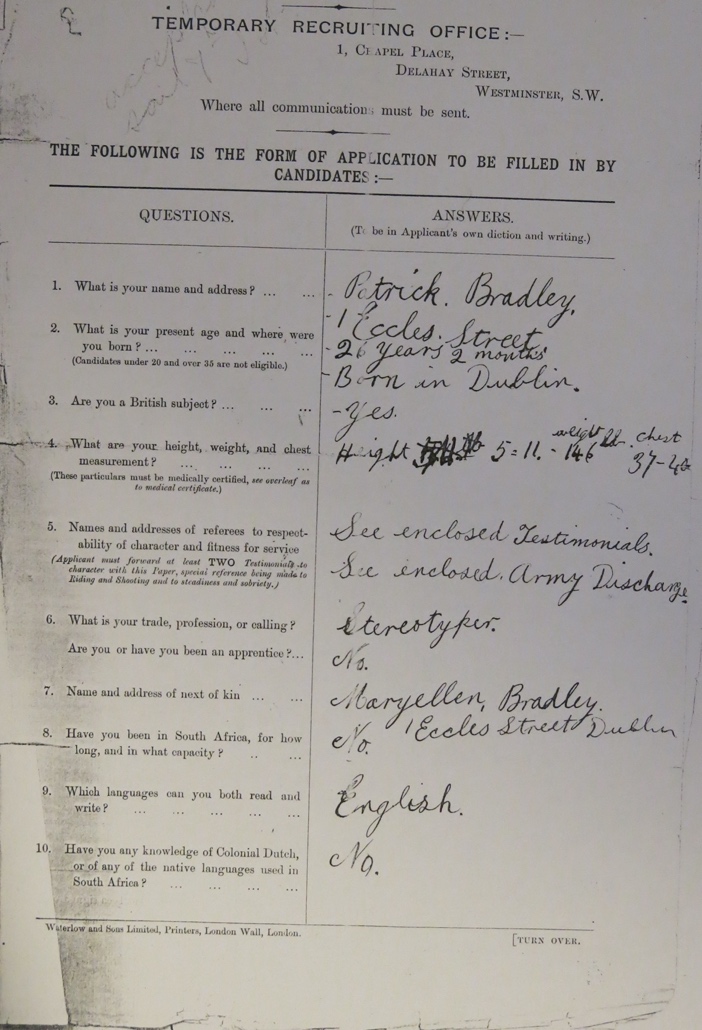 TEMPORARY RECRUITING OFFICE:—
1, CHAPEL PLACE,
DELAHAY STREET,
WESTMINSTER, S.W.
Where all communications must be sent.
THE FOLLOWING IS THE FORM OF APPLICATION TO BE FILLED IN BY
CANDIDATES:—
QUESTIONS.
ANSWERS.
(To be in Applicant's own diction and writing.)
1. What is your name and address? ... ...
- Patrick. Bradley.
- 1 Eccles. Street
2. What is your present age and where were
you born? ... ... ... ... ...
(Candidates under 20 and over 35 are not eligible.)
- 26 years 2 months
- Born in Dublin.
3. Are you a British subject? ... ... ...
- Yes.
4. What are your height, weight, and chest
measurement? ... ... ... ...
(These particulars must be medically certified, see overleaf as
to medical certificate.)
Height 5=11. - weight 146 lb. chest
37-40
5. Names and addresses of referees to respect-
ability of character and fitness for service
(Applicant must forward at least TWO Testimonials to
character with this Paper, special reference being made to
Riding and Shooting and to steadiness and sobriety.)
See enclosed Testimonials.
See enclosed. Army Discharge.
6. What is your trade, profession, or calling?
Stereotyper.
Are you or have you been an apprentice?...
No.
7. Name and address of next of kin ... ...
Maryellen, Bradley.
1 Eccles Street Dublin
8. Have you been in South Africa, for how
long, and in what capacity? .. ...
No.
9. Which languages can you both read and
write? ... ... ... ... ...
English.
10. Have you any knowledge of Colonial Dutch,
or of any of the native languages used in
South Africa? ... ... ... ...
No.
Waterlow and Sons Limited, Printers, London Wall, London.
[TURN OVER.